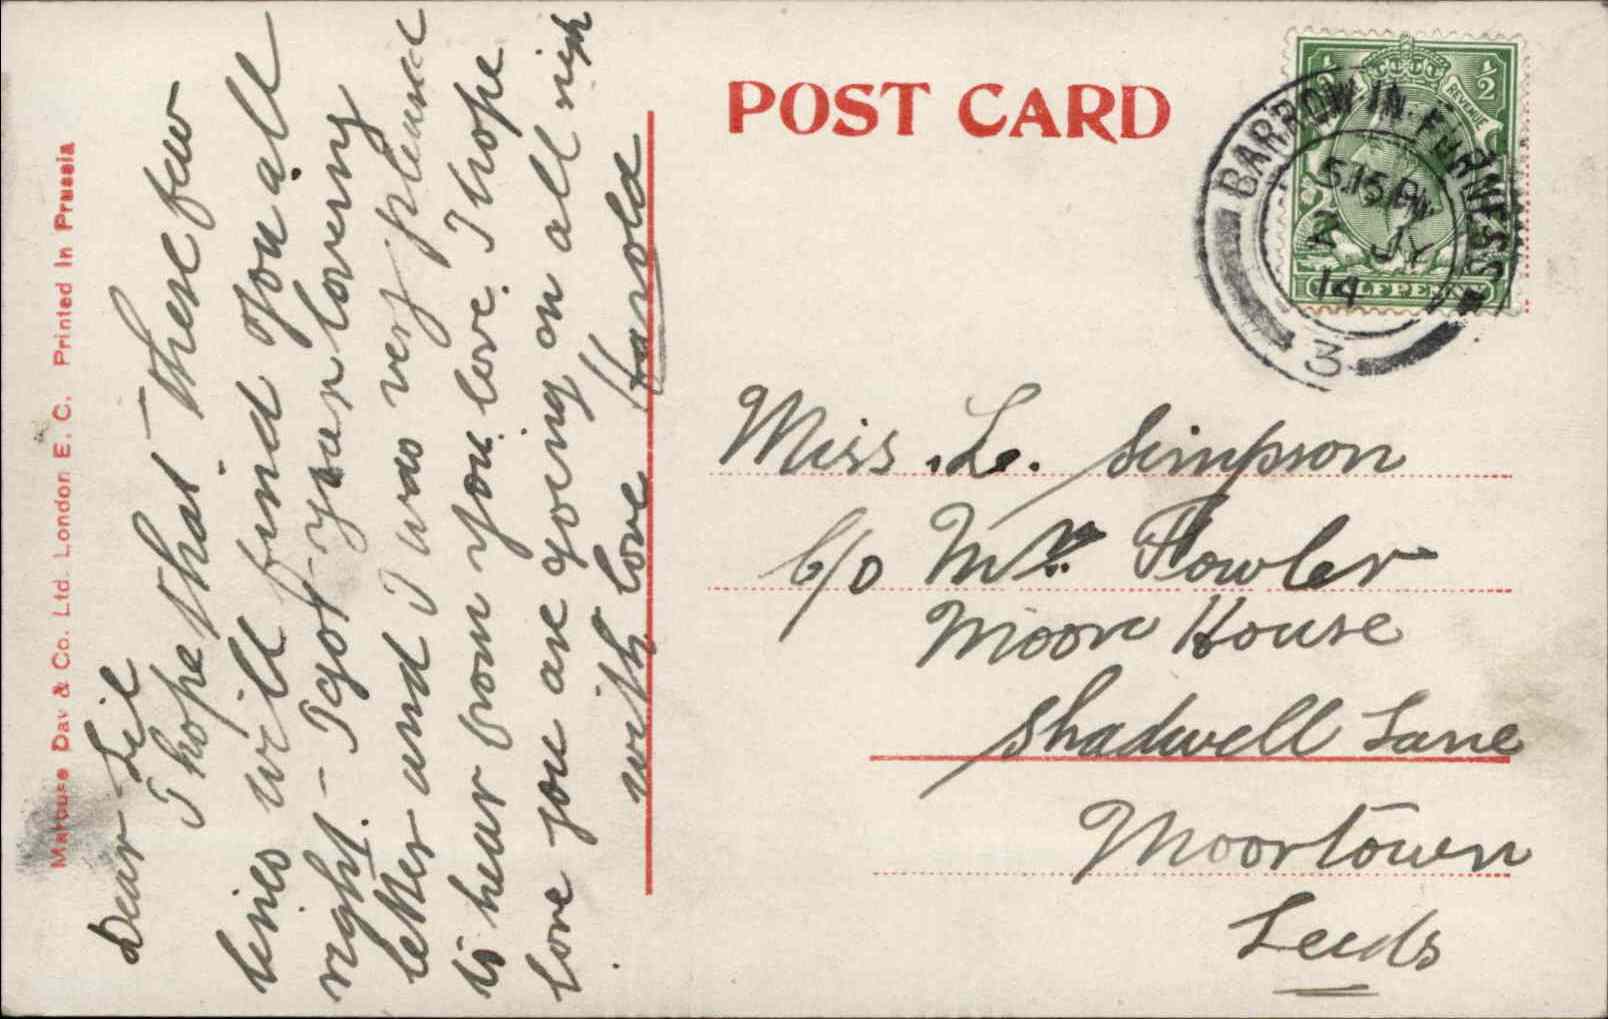 Marcuse Day & Co. Ltd. London E. C. Printed in Prussia
Dear Lil
I hope that these few
lines will find you all
right - I got your loving
letter and I was very pleased
to hear from you love. I hope
love you are going on all right
with love Harold
POST CARD
½ ½
REVENUE
HALFPENNY
BARROW-IN-FURNESS
5.15 PM
2 JY
14
3
Miss. L. Simpson
C/o Mr. Fowler
Moor House
Shadwell Lane
Moortown
Leeds